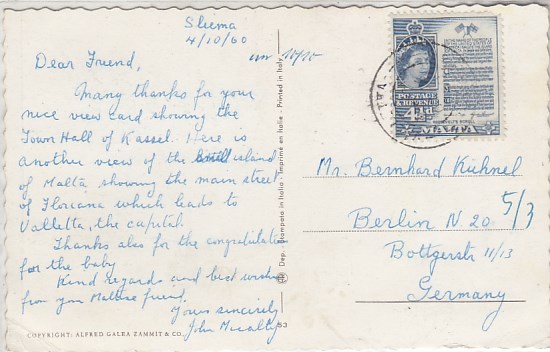 Sliema
4/10/60
Dear Friend,
Many thanks for your
nice view card showing the
Town Hall of Kassel. Here is
another view of the island
of Malta showing the main street
of Floriana which leads to
Valletta, the capital.
Thanks also for the congratulations
for the baby
Kind regards and best wishes
from your Maltese friend,
Yours sincerely
John
COPYRIGHT: ALFRED GALEA ZAMMIT & CO.
Dep. Stampata in Italia - Imprimé en Italie - Printed in Italy
POSTAGE
& REVENUE
4½d
MALTA
Mr. Bernhard Kuehnel
5/3
Berlin N 20
Bottgerstr 11/13
Germany